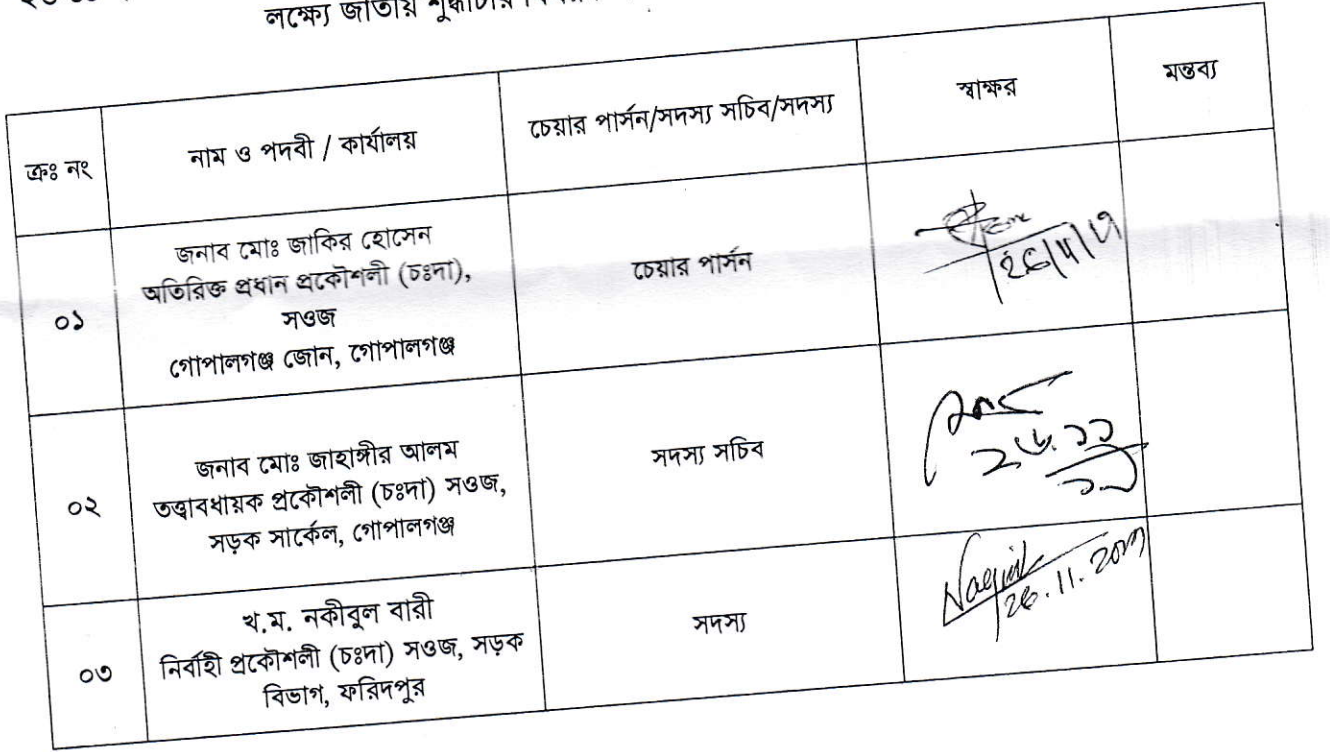 লক্ষ্যে জাতীয় শুদ্ধাচার
ক্রঃ নং
নাম ও পদবী / কার্যালয়
চেয়ার পার্সন/সদস্য সচিব/সদস্য
স্বাক্ষর
মন্তব্য
০১
জনাব মোঃ জাকির হোসেন
অতিরিক্ত প্রধান প্রকৌশলী (চঃদা),
সওজ
গোপালগঞ্জ জোন, গোপালগঞ্জ
চেয়ার পার্সন
০২
জনাব মোঃ জাহাঙ্গীর আলম
তত্ত্বাবধায়ক প্রকৌশলী (চঃদা) সওজ,
সড়ক সার্কেল, গোপালগঞ্জ
সদস্য সচিব
০৩
খ.ম. নকীবুল বারী
নির্বাহী প্রকৌশলী (চঃদা) সওজ, সড়ক
বিভাগ, ফরিদপুর
সদস্য